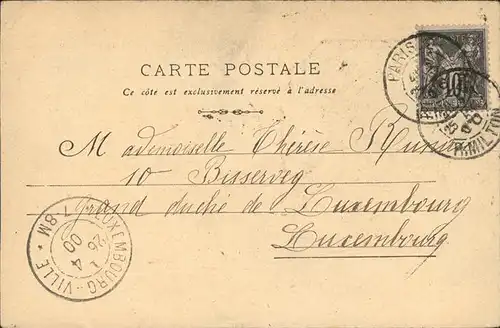 CARTE POSTALE
Ce côté est exclusivement réservé à l'adresse
Mademoiselle Thérèse
10 Bisserveg
grand duché de Luxembourg
Luxembourg
PARIS
10
R. MILTON
25
LUXEMBOURG-VILLE
7-8M
26
4
00